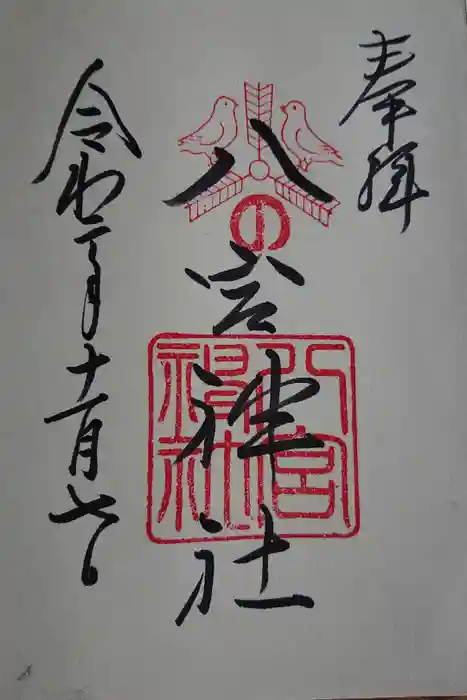 奉拝
八宮神社
八宮
神社
令和二年十一月七日